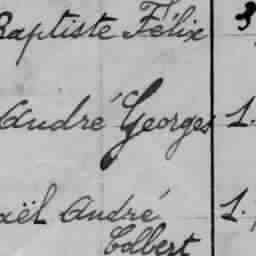 Baptiste Félix 3
André Georges 1.
aël André 1.
Colbert